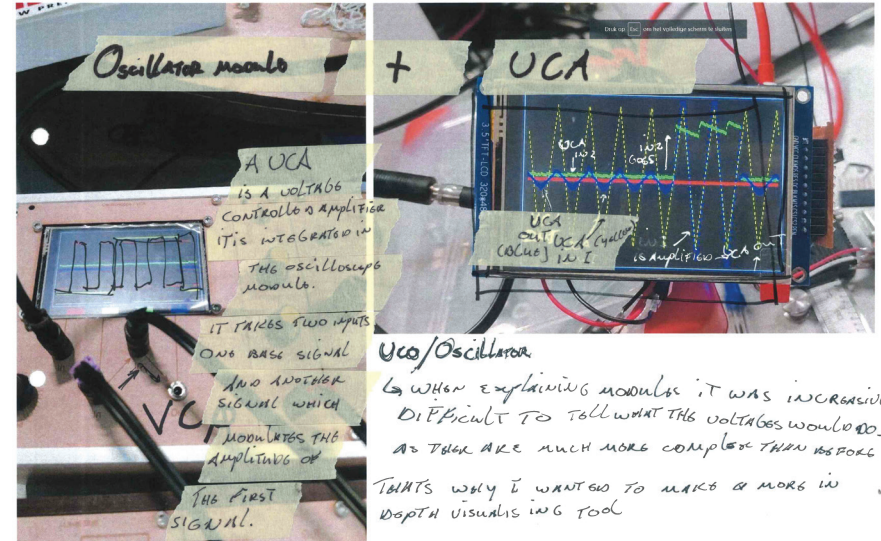 W PRE
Oscillator module + VCA
Druk op Esc om het volledige scherm te sluiten
3.5"TFT-LCD 320x48
A VCA
is a voltage
controlled amplifier
it is integrated in
the oscilloscope
module.
it takes two inputs
one base signal
and another
signal which
modulates the
amplitude of
the first
signal.
VC
VCA
in 2
in 2
goes
VCA
out
(blue)
VCA (yellow)
in 1
is amplified
VCA out
VCO/Oscillator
↳ when explaining modules it was increasin
difficult to tell what the voltages would do
as their are much more complex than before
Thats why I wanted to make a more in
depth visualising tool